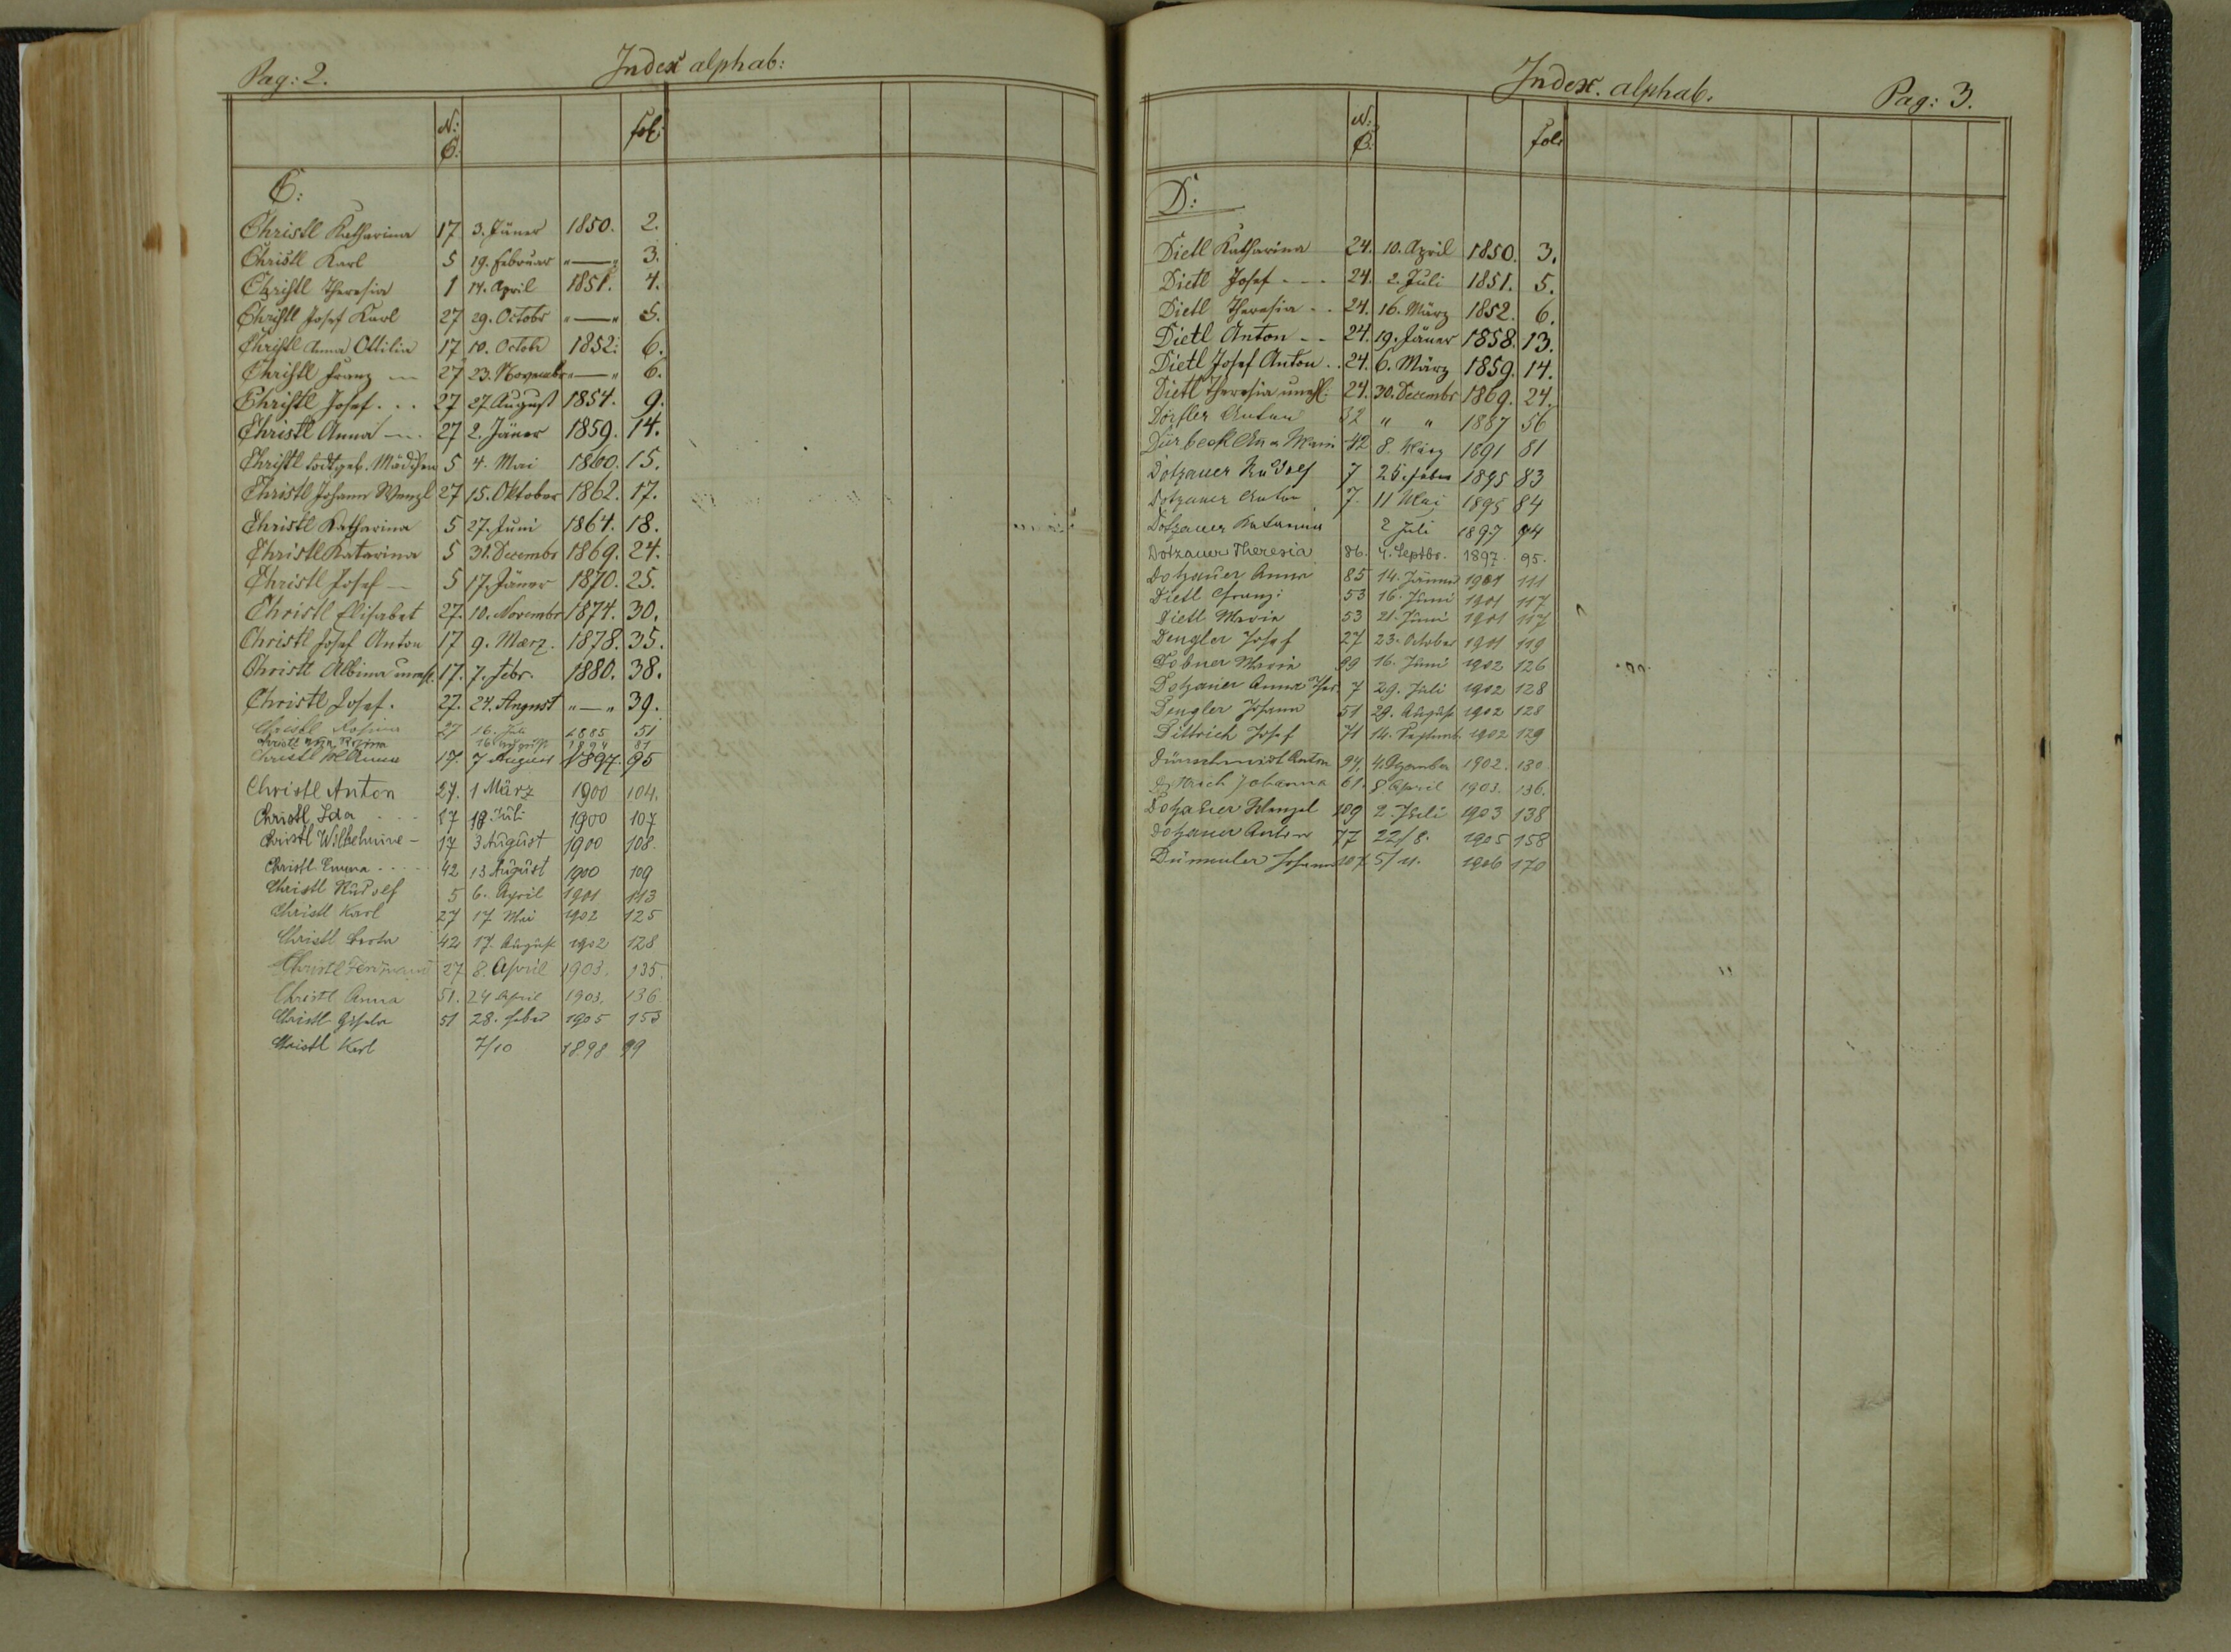 Pag: 2.
Index alphab:
N: C. fol:
C:
Christl Katharina 17 3. Jäner 1850. 2.
Christl Karl 5 19. Februar "—" 3.
Christl Theresia 1 14. April 1851. 4.
Christl Josef Karl 27 29. Octobr "—" 5.
Christl Anna Ottilia 17 10. Octobr 1852: 6.
Christl Franz — 27 23. Novembr "—" 6.
Christl Josef . . . 27 27. August 1854. 9.
Christl Anna — 27 2. Jäner 1859. 14.
Christl todtgeb. Mädchen 5 4. Mai 1860. 15.
Christl Johann Wenzl 27 15. Oktober 1862. 17.
Christl Katharina 5 27. Juni 1864. 18.
Christl Katarina 5 31. Decembr 1869. 24.
Christl Josef — 5 17. Jäner 1870. 25.
Christl Elisabet 27. 10. Novembr 1874. 30.
Christl Josef Anton 17 9. Maerz. 1878. 35.
Christl Albina unehl. 17. 7. Febr. 1880. 38.
Christl Josef. 27. 24. August "—" 39.
Christl Rosina 27 16. Juli 1885 51
Christl Rosina 16 August 1894 81
Christl Anna 17. 7 August 1897. 95
Christl Anton 27. 1 März 1900 104.
Christl Ida . . . 27 18 Juli 1900 107
Christl Wilhelmine – 17 3 August 1900 108
Christl Emma . . . . 42 13 August 1900 109
Christl Rudolf 5 6. April 1901 113
Christl Karl 27 17 Mai 1902 125
Christl Berta 42 17. August 1902 128
Christl Ferdinand 27 8. April 1903. 135.
Christl Anna 51. 24 April 1903. 136
Christl Gisela 51 28. Feber 1905 153
Christl Karl 7/10 1898 99
Index. alphab.
Pag: 3.
N: C. fol:
D:
Dietl Katharina 24. 10. April 1850. 3.
Dietl Josef - - - 24. 2. Juli 1851. 5.
Dietl Theresia - - 24. 16. März 1852. 6.
Dietl Anton - - 24. 19. Jäner 1858. 13.
Dietl Josef Anton . . 24. 6. März 1859. 14.
Dietl Theresia unehl. 24. 30. Decembr 1869. 24.
Dörfler Anton 32 " " 1887 56
Dürbeck Anna Marie 42 8. März 1891 81
Dotzauer Rudolf 7 25. Feber 1895 83
Dotzauer Anton 7. 11 Mai 1895 84
Dotzauer Katarina 2 Juli 1897 94
Dotzauer Theresia 86. 4. Septbr. 1897. 95.
Dotzauer Anna 85 14. Jänner 1901 111
Dietl Franz 53 16. Juni 1901 117
Dietl Maria 53 21. Juni 1901 117
Dengler Josef 27 23. October 1901 119
Dobner Maria 99 16. Juni 1902 126
Dotzauer Anna Ther. 7 29. Juli 1902 128
Dengler Johann 51 29. August 1902 128
Dittrich Josef 71 14. Septemb. 1902 129
Anton 94. 4. Dezember 1902. 130
Johanna 61. 8. April 1903. 136.
Dotzauer Wenzel 109 2. Juli 1903 138
Dotzauer Anton 77 22/8. 1905 158
Dümmler Johann 107 5/11. 1906 170